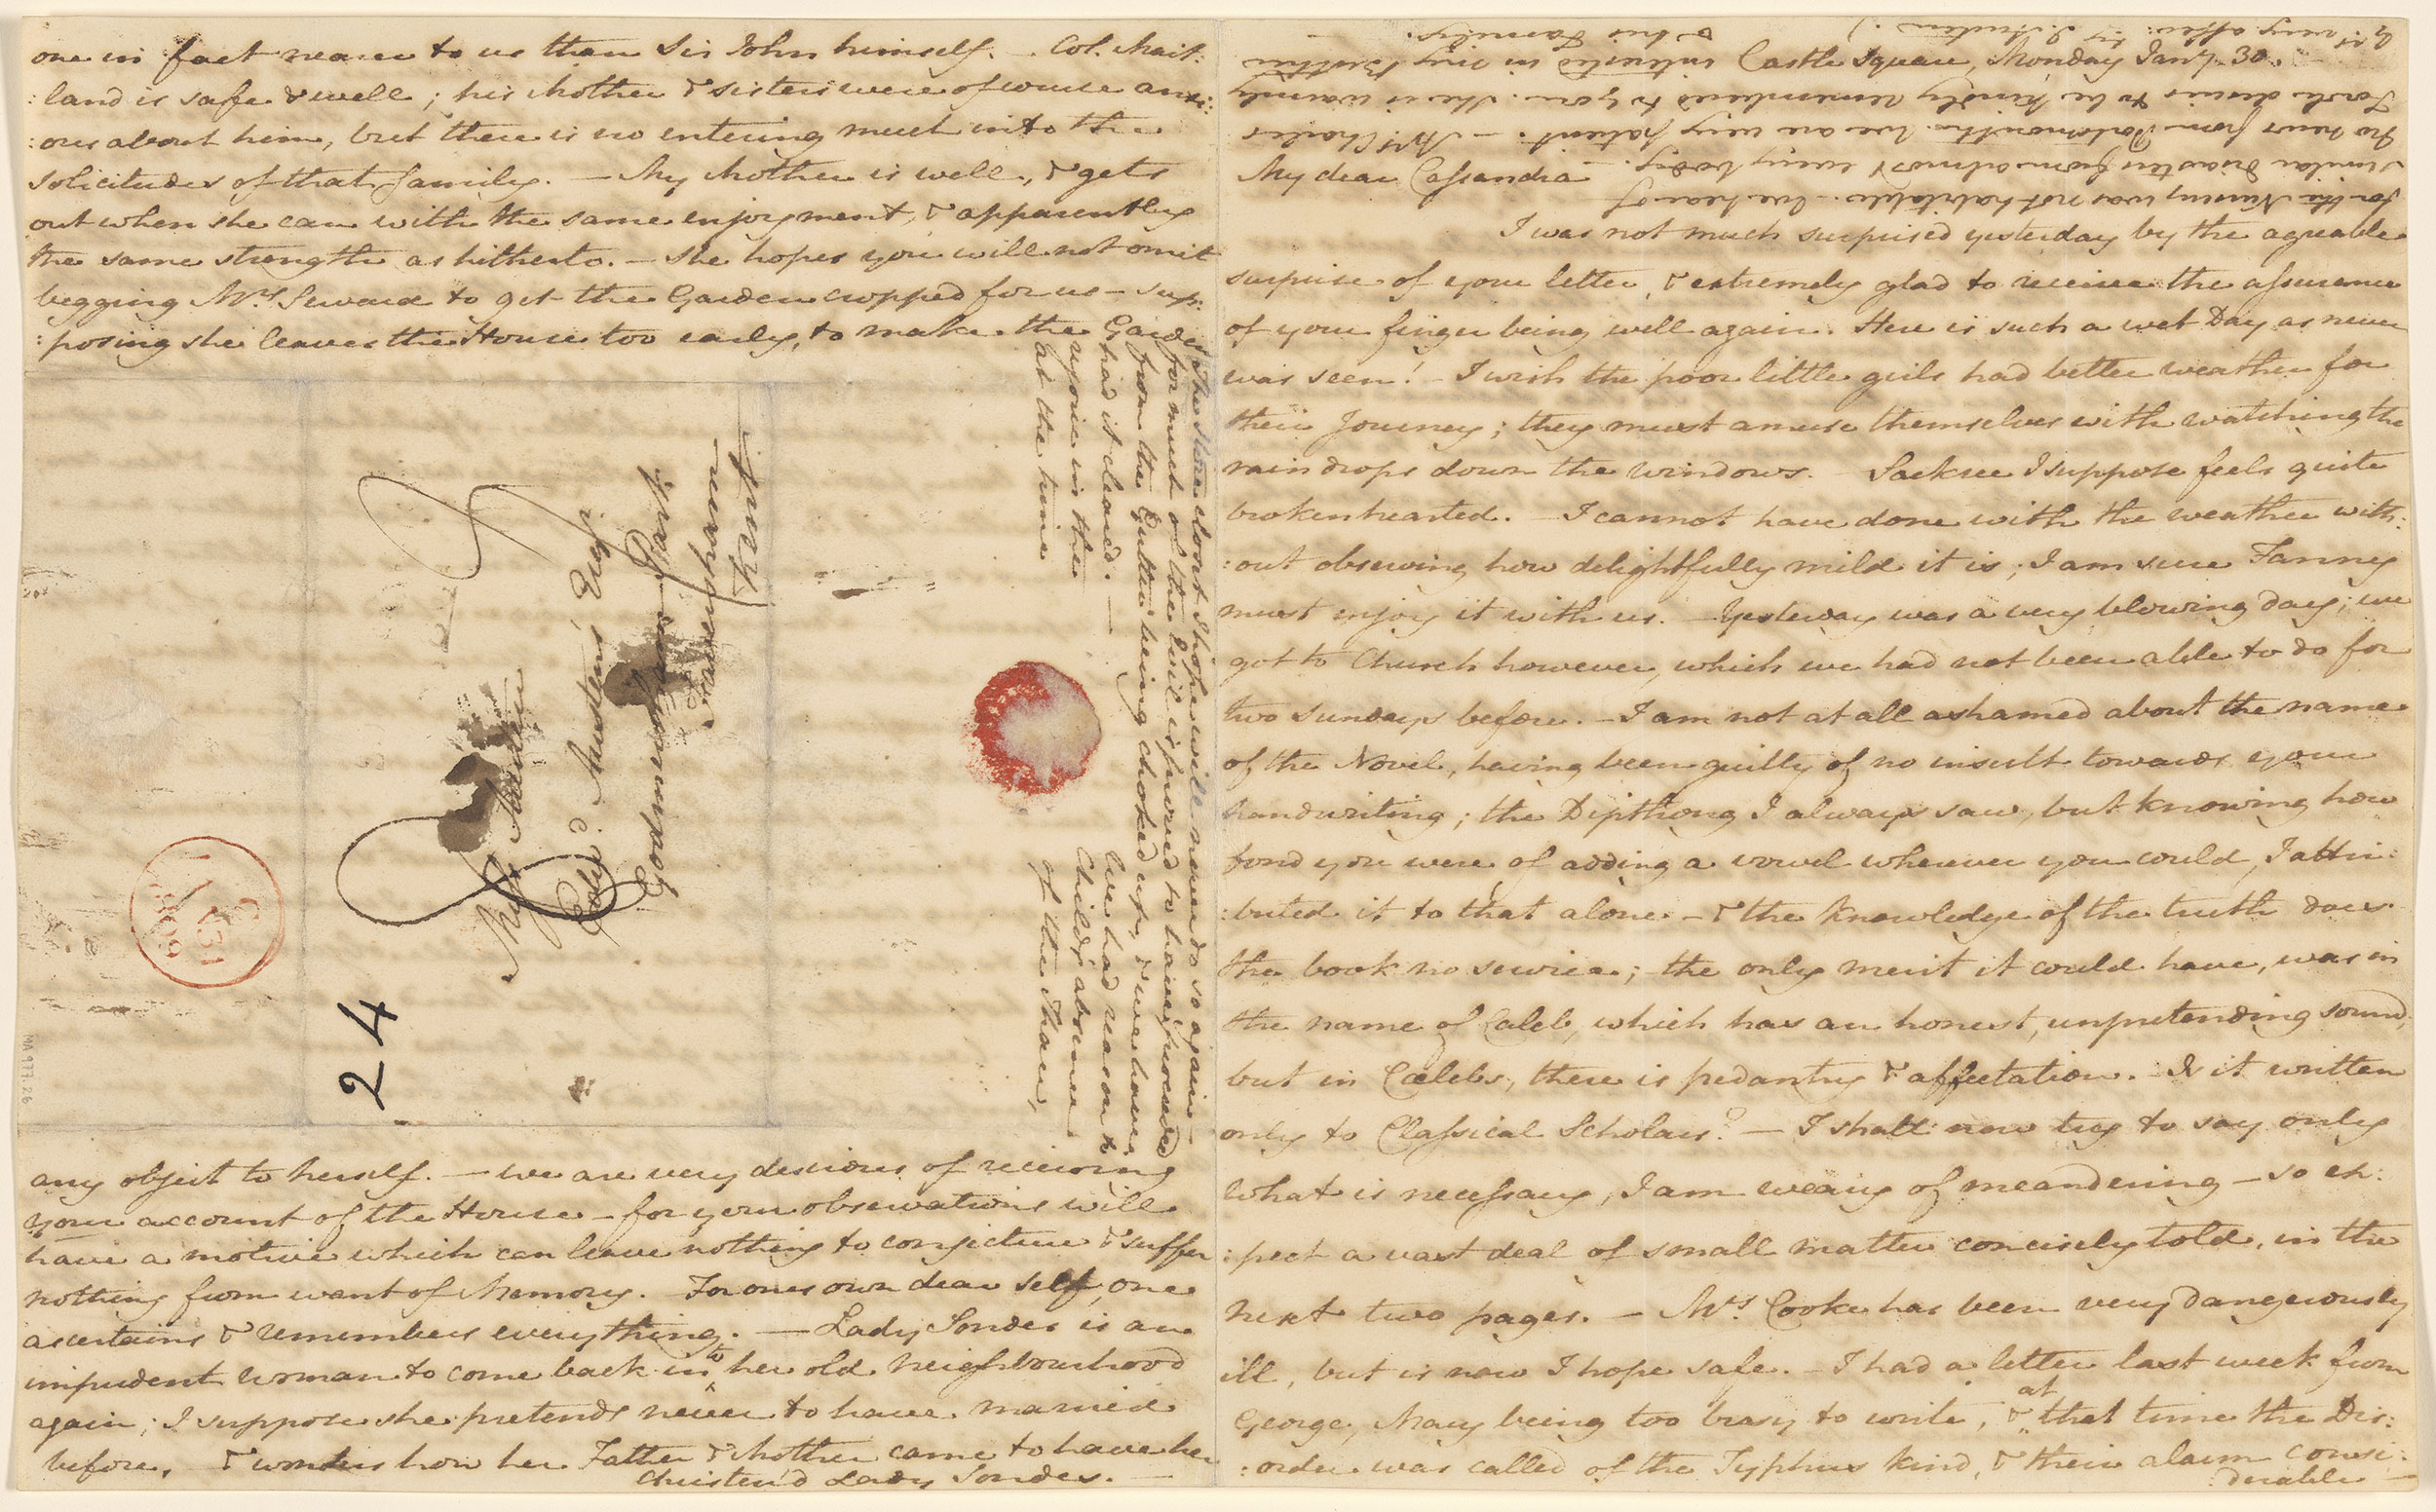 one in fact nearer to us than Sir John himself. — Col. Mait:
:land is safe & well; his Mother & sisters were of course anxi:
:ous about him, but there is no entering much into the
solicitudes of that family. — My Mother is well, & gets
out when she can with the same enjoyment, & apparently
the same strength as hitherto. — She hopes you will not omit
begging Mrs. Seward to get the Garden cropped for us — sup:
:posing she leaves the House too early, to make the Garden
any object to herself. — We are very desirous of receiving
your account of the House — for your observations will
have a motive which can leave nothing to conjecture & suffer
nothing from want of Memory. For one's own dear self, one
ascertains & remembers everything. — Lady Sondes is an
impudent woman to come back into her old Neighbourhood
again; I suppose she pretends never to have married
before, & wonders how her Father & Mother came to have her
christen'd Lady Sondes. —
The store closet I hope will never do so again —
for much of the Evil is proved to have proceeded
from the Gutter being choked up, & we have
had it cleared. — We had reason to
rejoice in the Child's absence
at the time of the Thaw,
for the Nursery was not habitable. — We hear of
similar disasters from almost every body. —
No news from Portsmouth. We are very patient. — Mrs. Charles
Fowle desires to be kindly remembered to you. She is warmly
interested in my Brother
& his Family. —
Yrs very affec:ly J. Austen.
Miss Austen
Edwd. Austen's Esqr.
Godmersham Park
Faversham
Kent
24
C
1 FE 1
1809
MA 977.26
Castle Square, Monday Jany. 30.
My dear Cassandra
I was not much surprised yesterday by the agreable
surprise of your letter, & extremely glad to receive the assurance
of your finger being well again. Here is such a wet Day as never
was seen! — I wish the poor little girls had better weather for
their Journey; they must amuse themselves with watching the
raindrops down the Windows. Sackree I suppose feels quite
brokenhearted. — I cannot have done with the weather with:
:out observing how delightfully mild it is; I am sure Fanny
must enjoy it with us. — Yesterday was a very blowing day; we
got to Church however, which we had not been able to do for
two Sundays before. — I am not at all ashamed about the name
of the Novel, having been guilty of no insult towards your
handwriting; the Dipthong I always saw, but knowing how
fond you were of adding a vowel wherever you could, I attri:
:buted it to that alone — & the knowledge of the truth does
the book no service; — the only merit it could have, was in
the name of Caleb, which has an honest, unpretending sound;
but in Cœlebs, there is pedantry & affectation. — Is it written
only to Classical Scholars? — I shall now try to say only
what is necessary, I am weary of meandering — so ex:
:pect a vast deal of small matter concisely told, in the
next two pages. — Mrs. Cooke has been very dangerously
ill, but is now I hope safe. — I had a letter last week from
George, Mary being too busy to write, & at that time the Dis:
:order was called of the Typhus kind, & their alarm consi:
:derable —